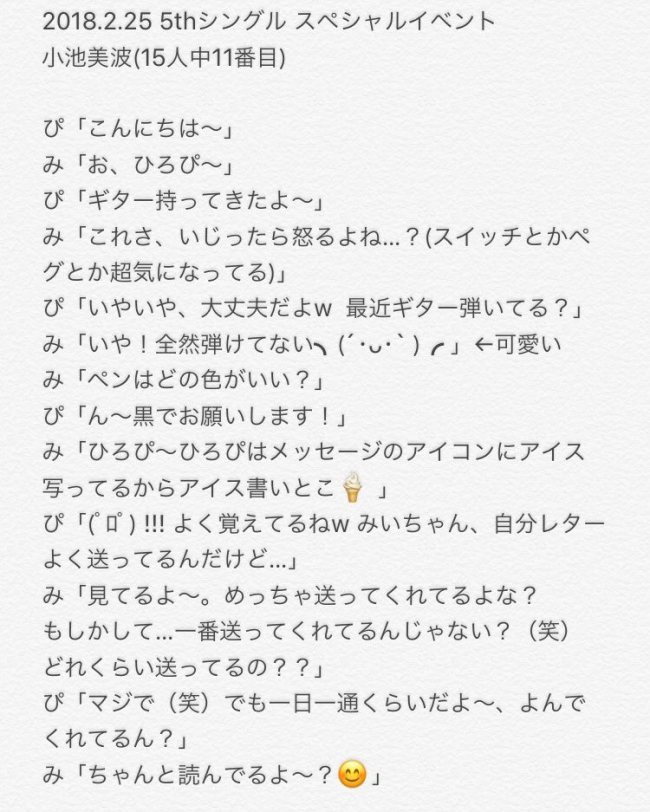 2018.2.25 5thシングル スペシャルイベント
小池美波(15人中11番目)
ぴ「こんにちは〜」
み「お、ひろぴ〜」
ぴ「ギター持ってきたよ〜」
み「これさ、いじったら怒るよね...？(スイッチとかペ
グとか超気になってる)」
ぴ「いやいや、大丈夫だよw 最近ギター弾いてる？」
み「いや！全然弾けてない╮(´･ᴗ･` )╭」←可愛い
み「ペンはどの色がいい？」
ぴ「ん〜黒でお願いします！」
み「ひろぴ〜ひろぴはメッセージのアイコンにアイス
写ってるからアイス書いとこ🍦 」
ぴ「(ﾟﾛﾟ) !!! よく覚えてるねw みいちゃん、自分レター
よく送ってるんだけど...」
み「見てるよ〜。めっちゃ送ってくれてるよな？
もしかして...一番送ってくれてるんじゃない？（笑）
どれくらい送ってるの？？」
ぴ「マジで（笑）でも一日一通くらいだよ〜、よんで
くれてるん？」
み「ちゃんと読んでるよ〜？😊」